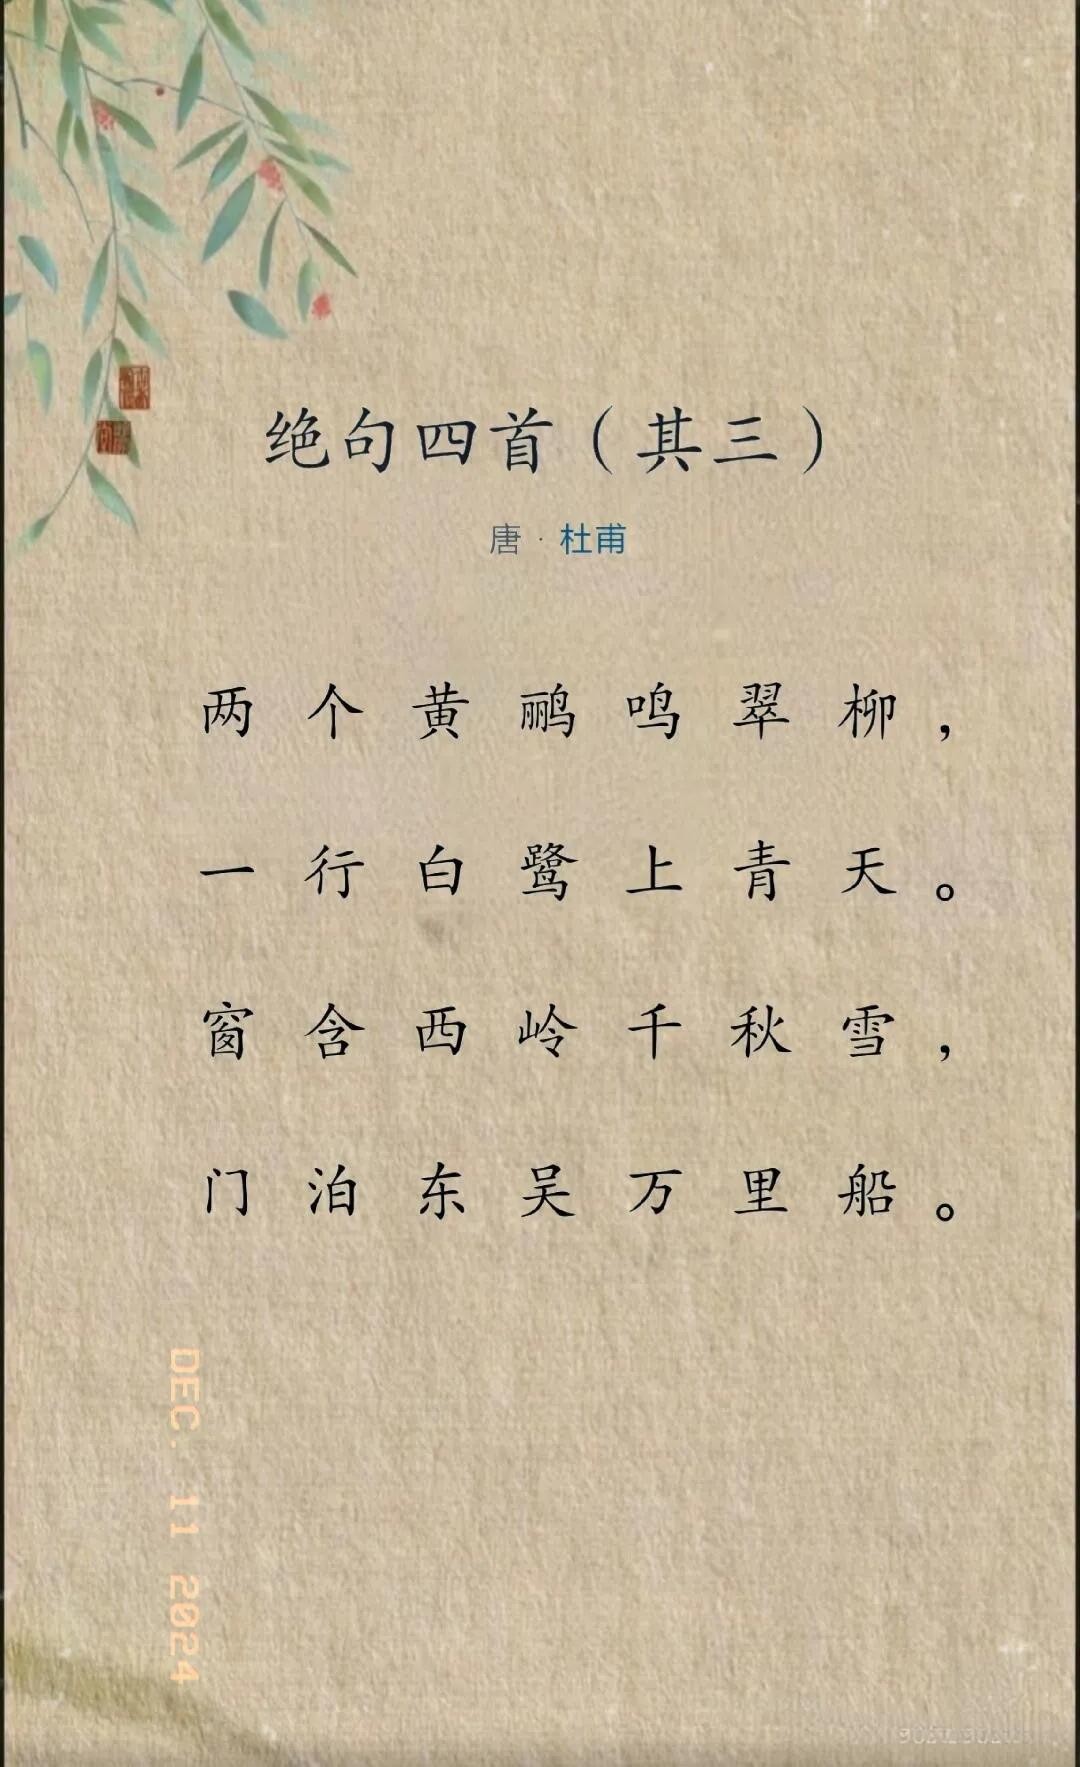 绝句四首（其三）
唐·杜甫
两个黄鹂鸣翠柳，
一行白鹭上青天。
窗含西岭千秋雪，
门泊东吴万里船。
DEC. 11 2024